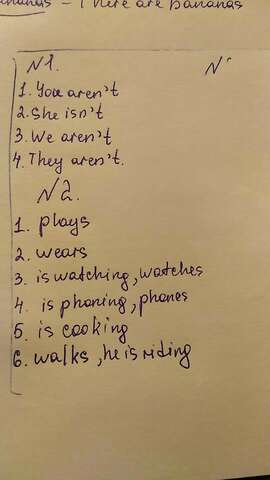 bananas – There are bananas
N1.
N
1. You aren't
2. She isn't
3. We aren't
4. They aren't.
N2.
1. plays
2. wears
3. is watching, watches
4. is phoning, phones
5. is cooking
6. walks, he is riding